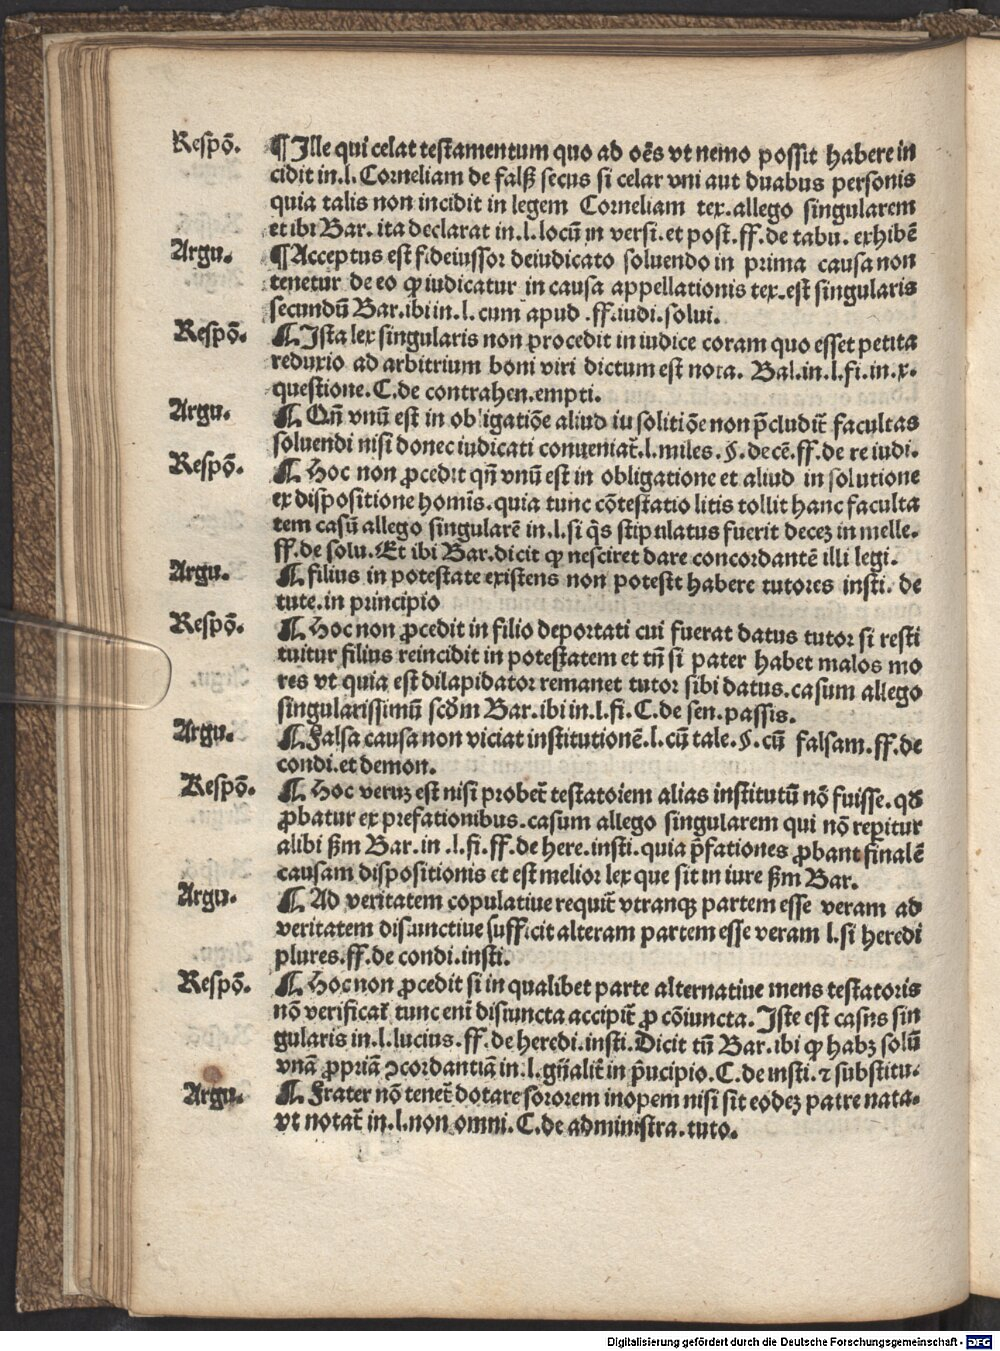 Respō. ¶ Ille qui celat testamentum quo ad oēs vt nemo possit habere in
cidit in.l. Corneliam de falß secus si celar vni aut duabus personis
quia talis non incidit in legem Corneliam tex.allego singularem
et ibi Bar. ita declarat in.l.locū in versi.et post.ff.de tabu. exhibē
Argu. ¶ Acceptus est fideiussor deiudicato soluendo in prima causa non
tenetur de eo ꝙ iudicatur in causa appellationis tex.est singularis
secundū Bar.ibi in.l.cum apud .ff.iudi.solui.
Respō. ¶ Ista lex singularis non procedit in iudice coram quo esset petita
reductio ad arbitrium boni viri dictum est nota. Bal.in.l.fi.in.x.
questione.C.de contrahen.empti.
Argu. ¶ Qñ vnū est in obligatiōe aliud iu solitiōe non p̄cludit̄ facultas
soluendi nisi donec iudicati conueniat̄.l.miles.§.decē.ff.de re iudi.
Respō. ¶ Hoc non ꝓcedit qñ vnū est in obligatione et aliud in solutione
ex dispositione homīs.quia tunc cōtestatio litis tollit hanc faculta
tem casū allego singularē in.l.si q̄s stipulatus fuerit decez in melle.
ff.de solu.Et ibi Bar.dicit ꝙ nesciret dare concordantē illi legi.
Argu. ¶ filius in potestate existens non potest habere tutores insti. de
tute.in principio
Respō. ¶ Hoc non ꝓcedit in filio deportati cui fuerat datus tutor si resti
tuitur filius reincidit in potestatem et tñ si pater habet malos mo
res vt quia est dilapidator remanet tutor sibi datus.casum allego
singularissimū scd̄m Bar.ibi in.l.fi.C.de sen.passis.
Argu. ¶ Falsa causa non viciat institutionē.l.cū tale.§.cū falsam.ff.de
condi.et demon.
Respō. ¶ Hoc veruz est nisi probet̄ testatoiem alias institutū nō fuisse.qd̄
ꝓbatur ex prefationibus.casum allego singularem qui nō reperitur
alibi ßm Bar.in .l.fi.ff.de here.insti.quia p̄fationes ꝓbant finalē
causam dispositionis et est melior lex que sit in iure ßm Bar.
Argu. ¶ Ad veritatem copulatiue requit̄ vtranqꝫ partem esse veram ad
veritatem disiunctiue sufficit alteram partem esse veram l.si heredi
plures.ff.de condi.insti.
Respō. ¶ Hoc non ꝓcedit si in qualibet parte alternatiue mens testatoris
nō verificat̄ tunc enī disiuncta accipit̄ ꝓ cōiuncta.Iste est casns sin
gularis in.l.lucius.ff.de heredi.insti.Dicit tñ Bar.ibi ꝙ habꝫ solū
vnā ꝓpriā ꝯcordantiā in.l.gn̄alit̄ in p̄ucipio.C.de insti.⁊ substitu.
Argu. ¶ Frater nō tenet̄ dotare sororem inopem nisi sit eodez patre nata.
vt notat̄ in.l.non omni.C.de administra.tuto.
Digitalisierung gefördert durch die Deutsche Forschungsgemeinschaft - DFG